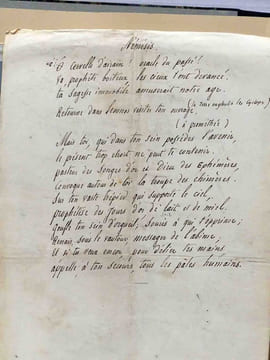 Némésis.
O Cervelle d'airain! oracle du passé!
Va, prophète boiteux, les cieux t'ont devancé.
La sagesse immobile amuserait notre age.
Retourne dans Lemnos visiter ton ouvrage.
(à prométhée)
Mais toi, qui dans ton sein possèdes l'avenir,
le présent trop étroit ne peut te contenir.
pasteur des songes d'or et Dieu des Ephémères,
Convoque autour de toi la troupe des chimères,
Sur ton vaste trépied qui supporte le ciel,
prophétise des jours d'or de lait et de miel.
Gonfle ton sein d'orgueil, Souris à qui t'opprime;
Renais, sous le vautour messager de l'abîme,
Et si tu veux encor pour délier tes mains
appelle à ton secours, tous les pâles humains.